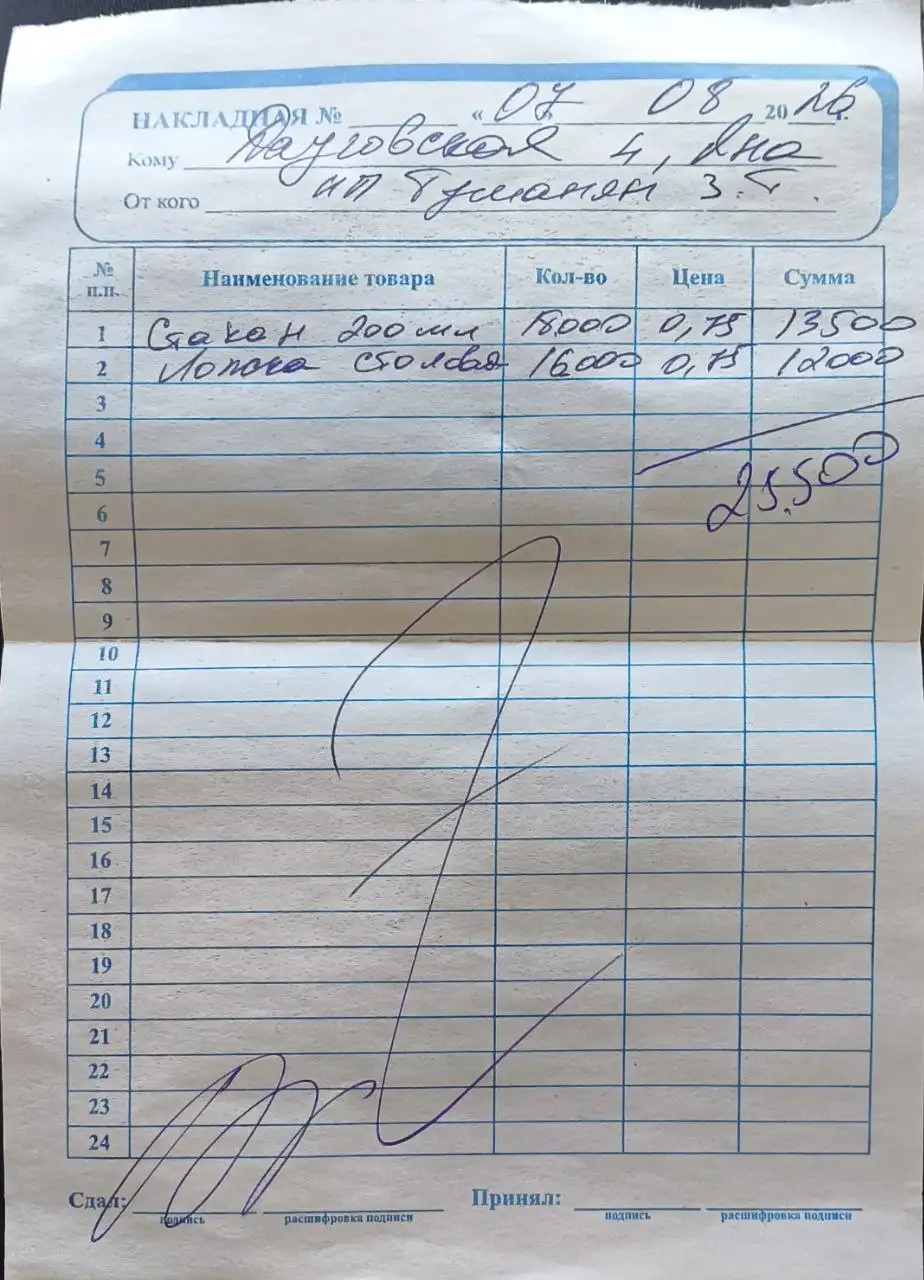 НАКЛАДНАЯ № « 07 » 08 20 26.
Кому 4, Яна
От кого ИП Туманян З.Т.
№ п.п. Наименование товара Кол-во Цена Сумма
1 Стакан 200 мл 18000 0,75 13500
2 Ложка столовая 16000 0,75 12000
3
4
5
25.500
6
7
8
9
10
11
12
13
14
15
16
17
18
19
20
21
22
23
24
Сдал: Принял:
подпись расшифровка подписи подпись расшифровка подписи